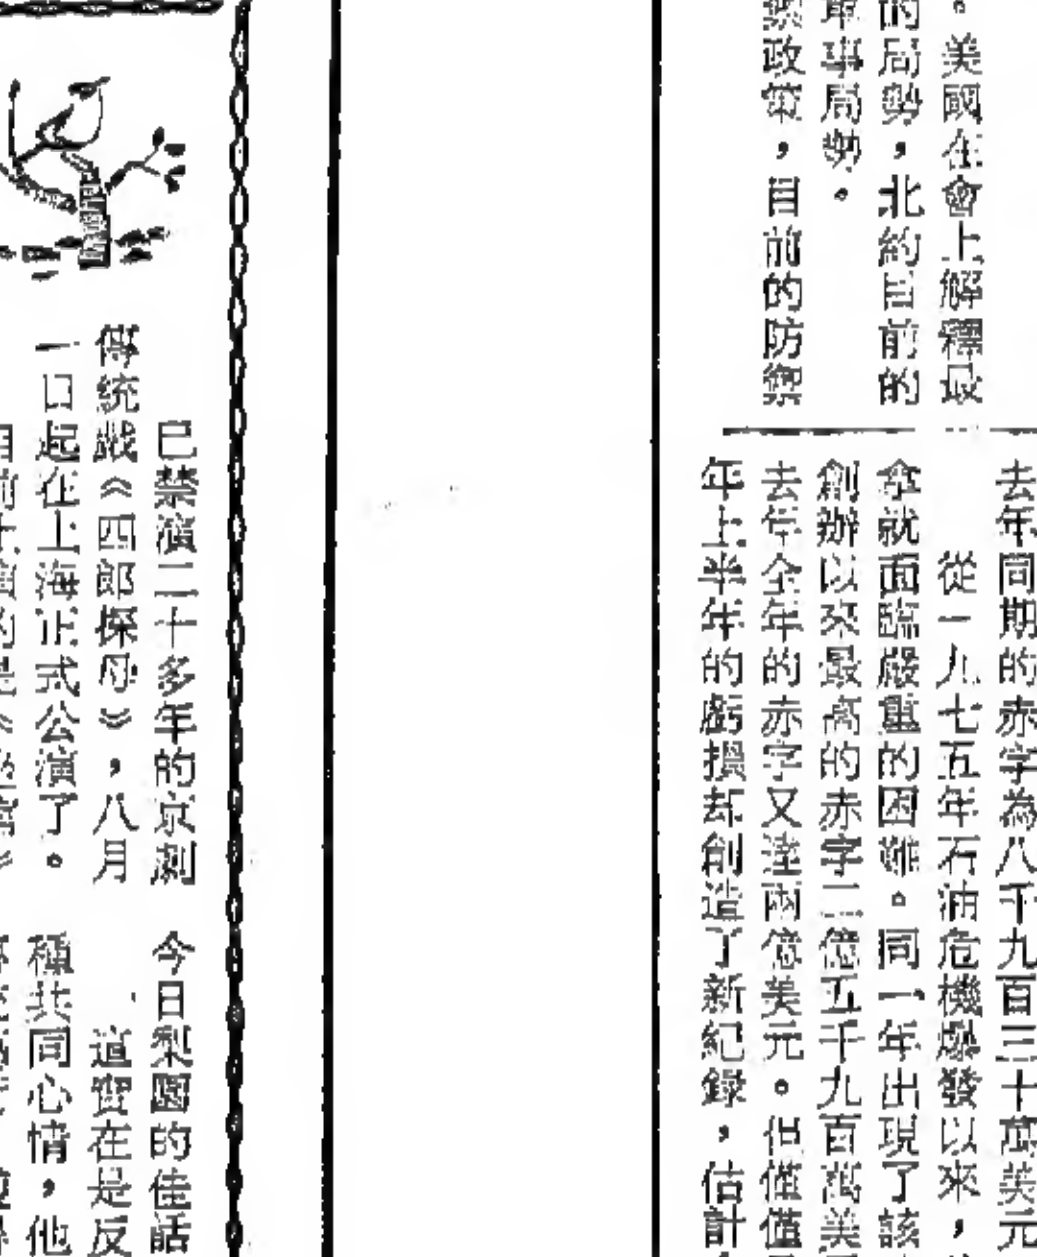 。美國在會上解釋最
的局勢，北約目前的
軍事局勢。
政策，目前的防禦
去年同期的赤字為八千九百三十萬美元
從一九七五年石油危機爆發以來，
拿就面臨嚴重的困難。同一年出現了該
創辦以來最高的赤字二億五千九百萬美
去年全年的赤字又達兩億美元。但僅僅
年上半年的虧損却創造了新紀錄，估計
已禁演二十多年的京劇
傳統戲《四郎探母》，八月
一日起在上海正式公演了。
今日梨園的佳話
這實在是反
種共同心情，他